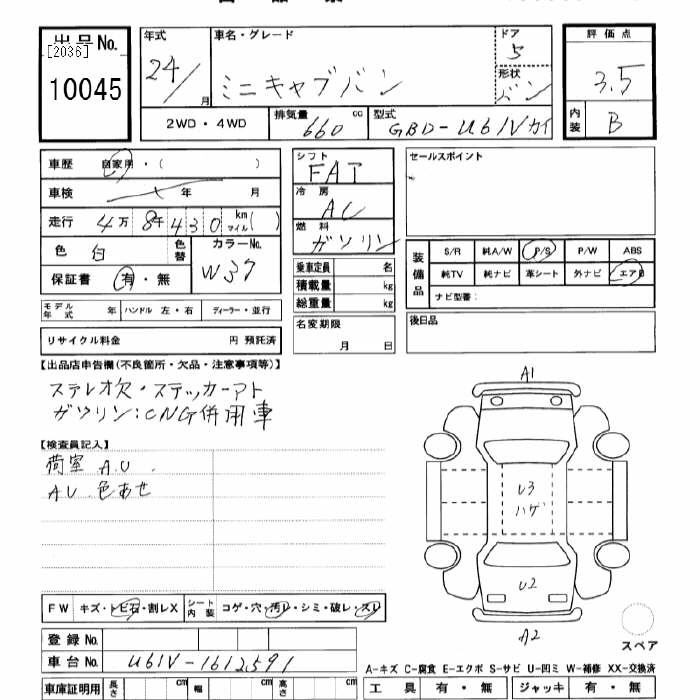 出品No.
[2036]
10045
年式
24/
月
車名・グレード
ミニキャブバン
ドア
5
形状
バン
評価点
3.5
内装
B
2WD・4WD
排気量
660
cc
型式
GBD-U61Vカイ
車歴 自家用・( )
車検 年 月
走行 4万8千430 km マイル( )
色 白 色替
カラーNo.
W37
保証書 有・無
モデル年式 年 ハンドル 左・右 ディーラー・並行
リサイクル料金 円 預託済
シフト
FAT
冷房
AC
燃料
ガソリン
乗車定員 名
積載量 kg
総重量 kg
名変期限
月 日
セールスポイント
装備品
S/R 純A/W P/S P/W ABS
純TV 純ナビ 革シート 外ナビ エアB
ナビ型番:
後日品
【出品店申告欄(不良箇所・欠品・注意事項等)】
ステレオ欠・ステッカーアト
ガソリン:CNG併用車
【検査員記入】
荷室 A.U.
AU 色あせ
A1
U3
ハゲ
U2
A2
スペア
FW キズ・トビ石・割レX シート内装 コゲ・穴・汚レ・シミ・破レ・スレ
登録No.
車台No. U61V-1612591
車庫証明用 長さ cm 幅 cm 高さ cm
A-キズ C-腐食 E-エクボ S-サビ U-凹ミ W-補修 XX-交換済
工具 有・無 ジャッキ 有・無